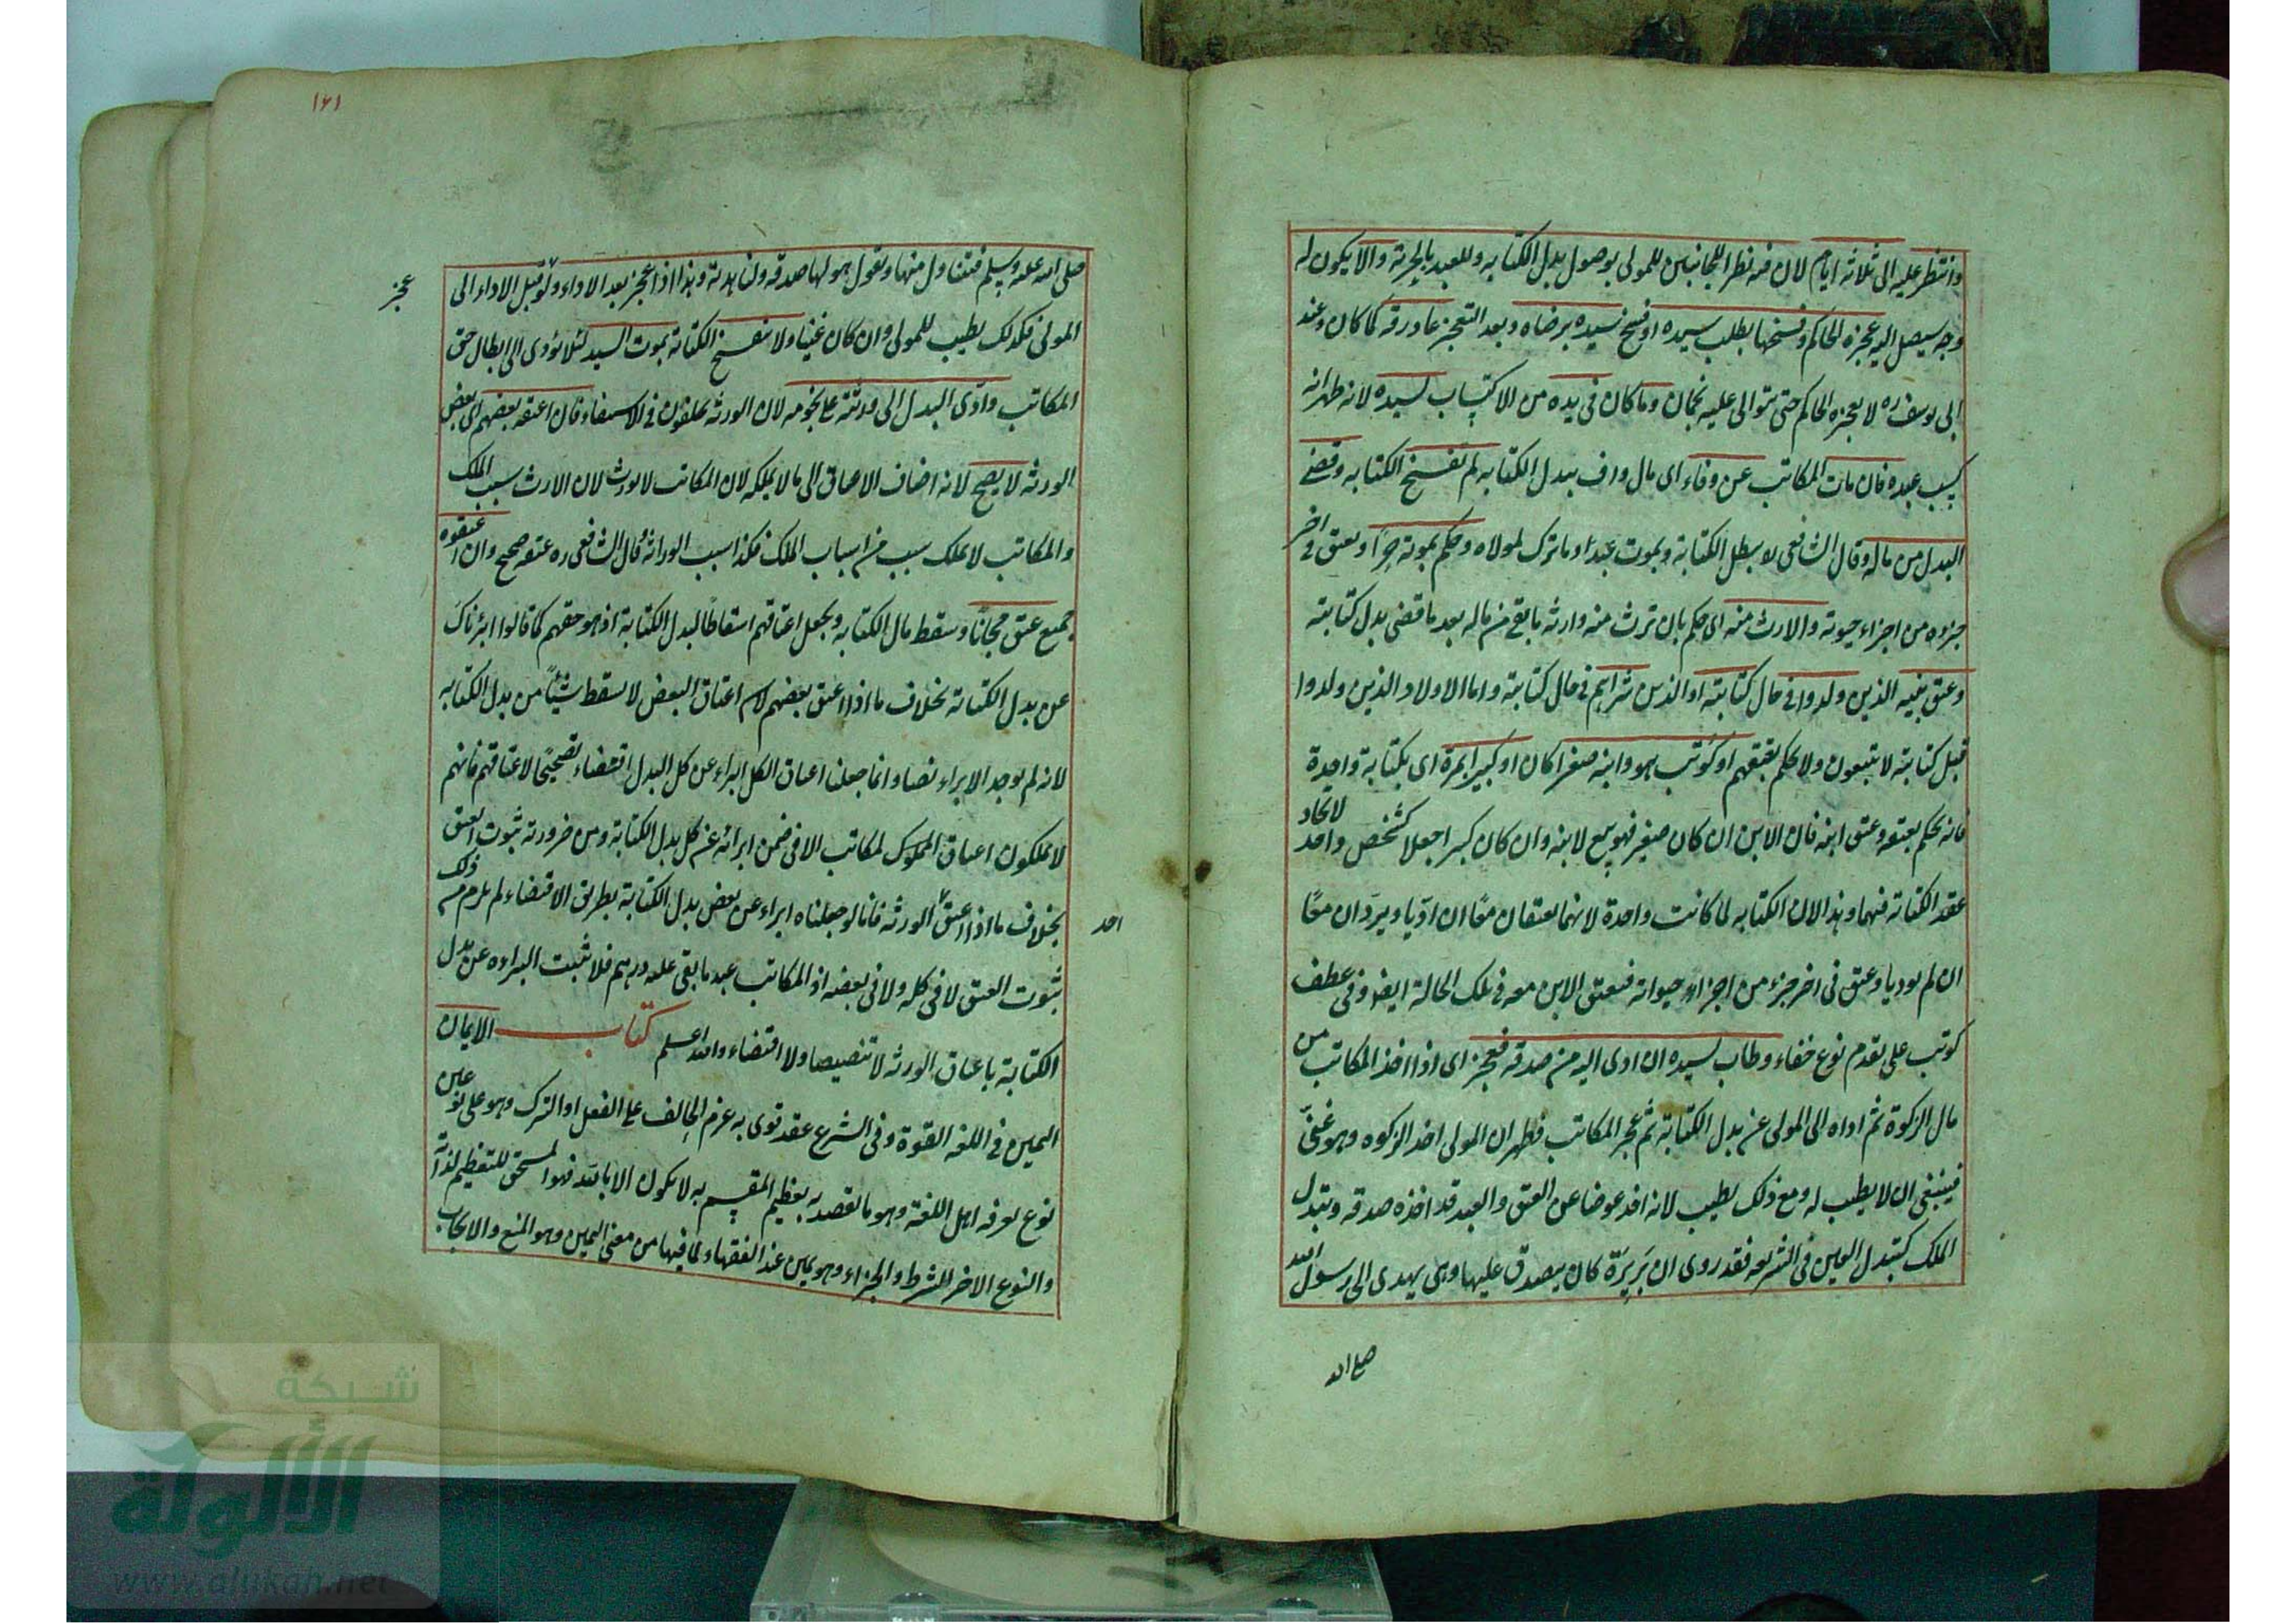 وانتظر عليه الى ثلاثة ايام لان فيه نظرا للجانبين للمولى بوصول بدل الكتابه وللعبد بالحرية والا يكون له
وجه سيصل اليه عجزه الحاكم وفسخها بطلب سيده او فسخ سيده برضاه وبعد التعجيز عاد رقه كما كان وعند
ابى يوسف ره لا يعجزه الحاكم حتى يتوالى عليه نجمان وما كان فى يده من الاكتساب لسيده لانه ظهر انه
كسب عبده فان مات المكاتب عن وفاء اى مال واف ببدل الكتابه لم تفسخ الكتابه وقضى
البدل من ماله وقال الشافعى ره يبطل الكتابة ويموت عبدا وما ترك لمولاه وحكم بموته حرا ويعتق فى اخر
جزوه من اجزاء حيوته والارث منه اى حكم بان ترث منه وارثه ما بقى من ماله بعد ما قضى بدل كتابته
وعتق بنيه الذين ولدوا فى حال كتابته او الذين شراهم فى حال كتابته واما الاولاد الذين ولدوا
قبل كتابته لا يتبعون ولا يحكم بعتقهم او كوتب هو وابنه صغيرا كان او كبيرا بمرة اى بكتابة واحدة
فانه يحكم بعتقه وعتق ابنه فان الابن ان كان صغير فهو تبع لابنه وان كان كبيرا جعلا كشخص واحد لاتحاد
عقد الكتابة فيهما وهذا لان الكتابه لما كانت واحدة لانهما يعتقان معًا ان ادّيا ويردّان معًا
ان لم يوديا وعتق فى اخر جزء من اجزاء حيواته فيعتق الابن معه فى تلك الحالة ايضا وفى عطف
كوتب على تقدم نوع خفاء وطاب لسيده ان ادى اليه من صدقه فعجز اى اذا اخذ المكاتب من
مال الزكوة ثم اداه الى المولى عن بدل الكتابة ثم عجز المكاتب فظهر ان المولى اخذ الزكوه وهو غنىّ
فينبغى ان لا يطيب له ومع ذلك يطيب لانه اخذ عوضا عن العتق والعبد قد اخذه صدقه وتبدل
الملك كتبدل العين فى الشريعه فقد روى ان بَرِيرَة كان يتصدق عليها وهى يهدى الى رسول الله
صلى الله
١٦١
صلى الله عليه وسلم فتناول منها وتقول هو لها صدقه ولنا هدية وهذا اذا عجز بعد الاداء ولو قبل الاداء الى
عجز
المولى فكذلك يطيب للمولى وان كان غنيا ولا تنفسخ الكتابة بموت السيد لئلا يؤدى الى ابطال حق
المكاتب وادّى البدل الى ورثته على نجومه لان الورثة يخلفون فى الاستيفاء فان اعتقه بعضهم اى بعض
الورثه لا يصح لانه اضاف الاعتاق الى ما لا يملكه لان المكاتب لا يورث لان الارث سبب الملك
والمكاتب لا يملك بسبب من اسباب الملك فكذا سبب الوراثة وقال الشافعى ره عتقه صحيح وان اعتقوه
جميع عتق مجانًا وسقط مال الكتابه ويجعل اعتاقهم اسقاطًا لبدل الكتابة اذ هو حقهم كما قالوا ابرئناك
عن بدل الكتابة بخلاف ما اذا اعتق بعضهم لان اعتاق البعض لا يسقط شيئًا من بدل الكتابه
لانه لم يوجد الابراء نصا وانما جعلنا اعتاق الكل ابراء عن كل البدل اقتضاء تصحيحًا لاعتاقهم فانهم
لا يملكون اعتاق المملوك لمكاتب الا فى ضمن ابرائه عن كل بدل الكتابة ومن ضرورته ثبوت العتق
بخلاف ما اذا اعتق الورثه فانا لو جعلناه ابراء عن بعض بدل الكتابة بطريق الاقتضاء لم يلزم من ذلك
احد
ثبوت العتق لا فى كله ولا فى بعضه اذ المكاتب عبد ما بقى عليه درهم فلا تثبت البراءه عن بدل
الكتابة باعتاق الورثه لا تنصيصا ولا اقتضاء والله اعلم كتاب الايمان
اليمين فى اللغه القوة وفى الشرع عقد قوى به عزم الحالف على الفعل او الترك وهو على نوعين
نوع يعرفه اهل اللغة وهو ما يقصد به تعظيم المقسم به لا يكون الا بالله فهو المستحق للتعظيم لذاته
والنوع الاخر الشرط والجزاء وهو يمين عند الفقهاء لما فيها من معنى اليمين وهو المنع والايجاب
شبكة
الألوكة
www.alukah.net